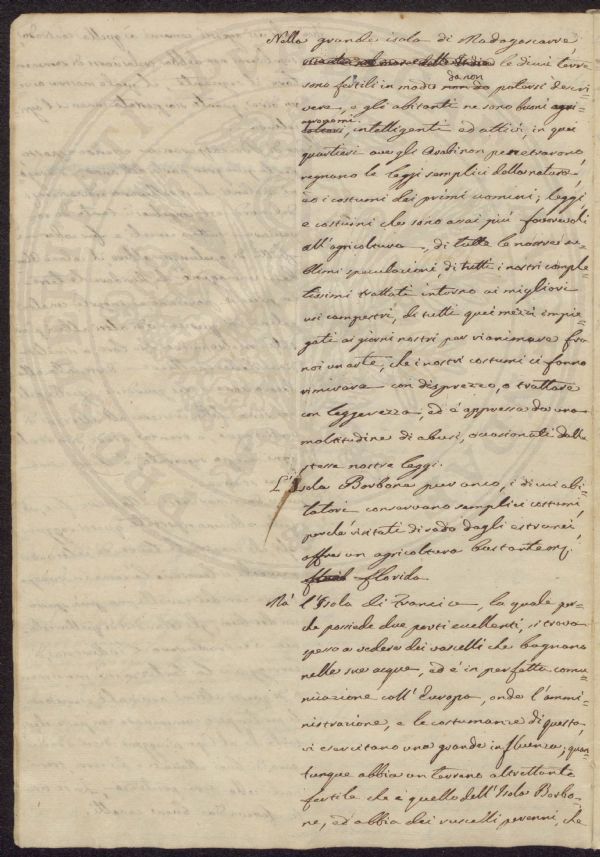 Nella grande isola di Madagascarre
le di cui terre
sono fertili in modo da non potersi descri=
vere, e gli abitanti ne sono buoni
agronomi, intelligenti ed attivi, in quei
quartieri ove gli Arabi non penetrarono,
regnano le leggi semplici della natura
ed i costumi dei primi uomini; leggi
e costumi che sono assai più favorevoli
all'agricoltura, di tutte le nostre su=
blimi speculazioni, di tutti i nostri comple=
tissimi trattati intorno ai migliori
usi campestri, di tutti quei mezzi impie=
gati ai giorni nostri per rianimare fra
noi un'arte, che i nostri costumi ci fanno
rimirare con disprezzo, o trattare
con leggerezza, ed è oppressa da una
moltitudine di abusi, occasionati dalle
stesse nostre leggi.
L'Isola Borbone pur anco, i di cui abi=
tatori conservano semplici costumi,
perchè visitati di rado dagli estranei,
offre un agricoltura bastantem.
florida.
Ma l'Isola di Francia, la quale per=
che possiede due porti eccellenti, si trova
spesso a vedere dei vascelli che bagnano
nelle sue acque, ed è in perfetta comu=
nicazione coll'Europa, onde l'ammi=
nistrazione, e le costumanze di questa,
vi esercitano una grande influenza; quan=
tunque abbia un terreno altrettanto
fertile che è quello dell'Isola Borbo=
ne, ed abbia dei ruscelli perenni, che